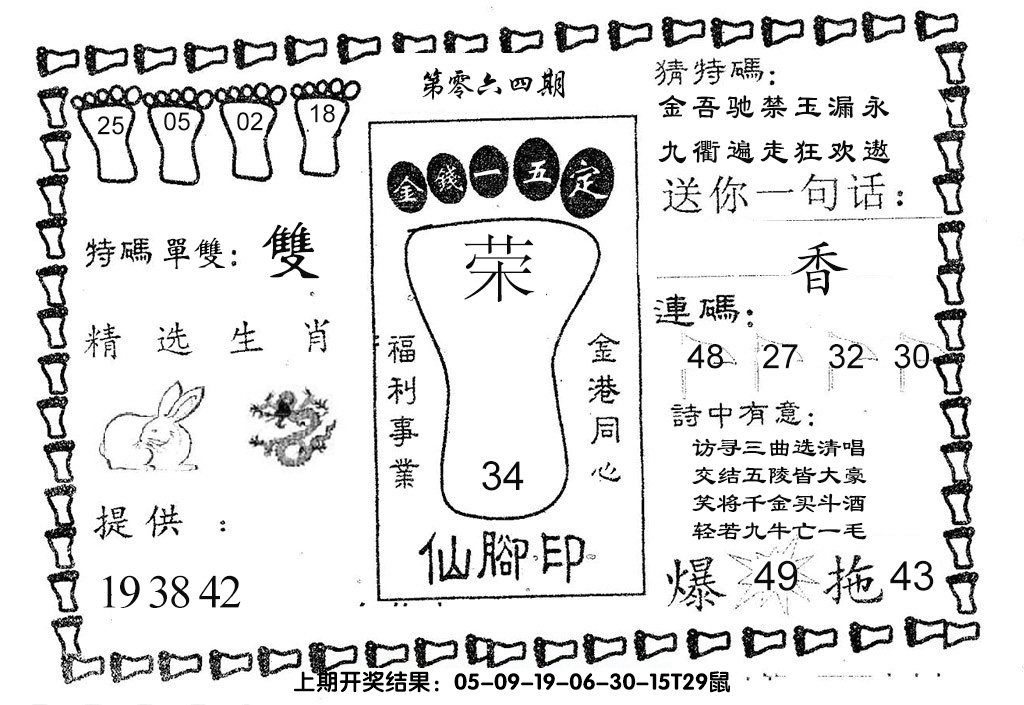 第零六四期
25 05 02 18
特碼單雙：雙
精选生肖
提供：
19 38 42
金錢一五定
荣
福利事業
金港同心
34
仙腳印
猜特碼：
金吾驰禁玉漏永
九衢遍走狂欢遨
送你一句话：
香
連碼：
48 27 32 30
詩中有意：
访寻三曲选清唱
交结五陵皆大豪
笑将千金买斗酒
轻若九牛亡一毛
爆 49 拖 43
上期开奖结果：05-09-19-06-30-15T29鼠